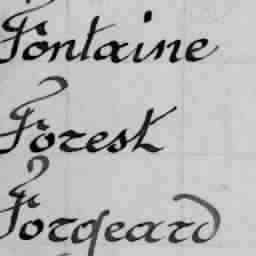 Fontaine
Forest
Forgeard